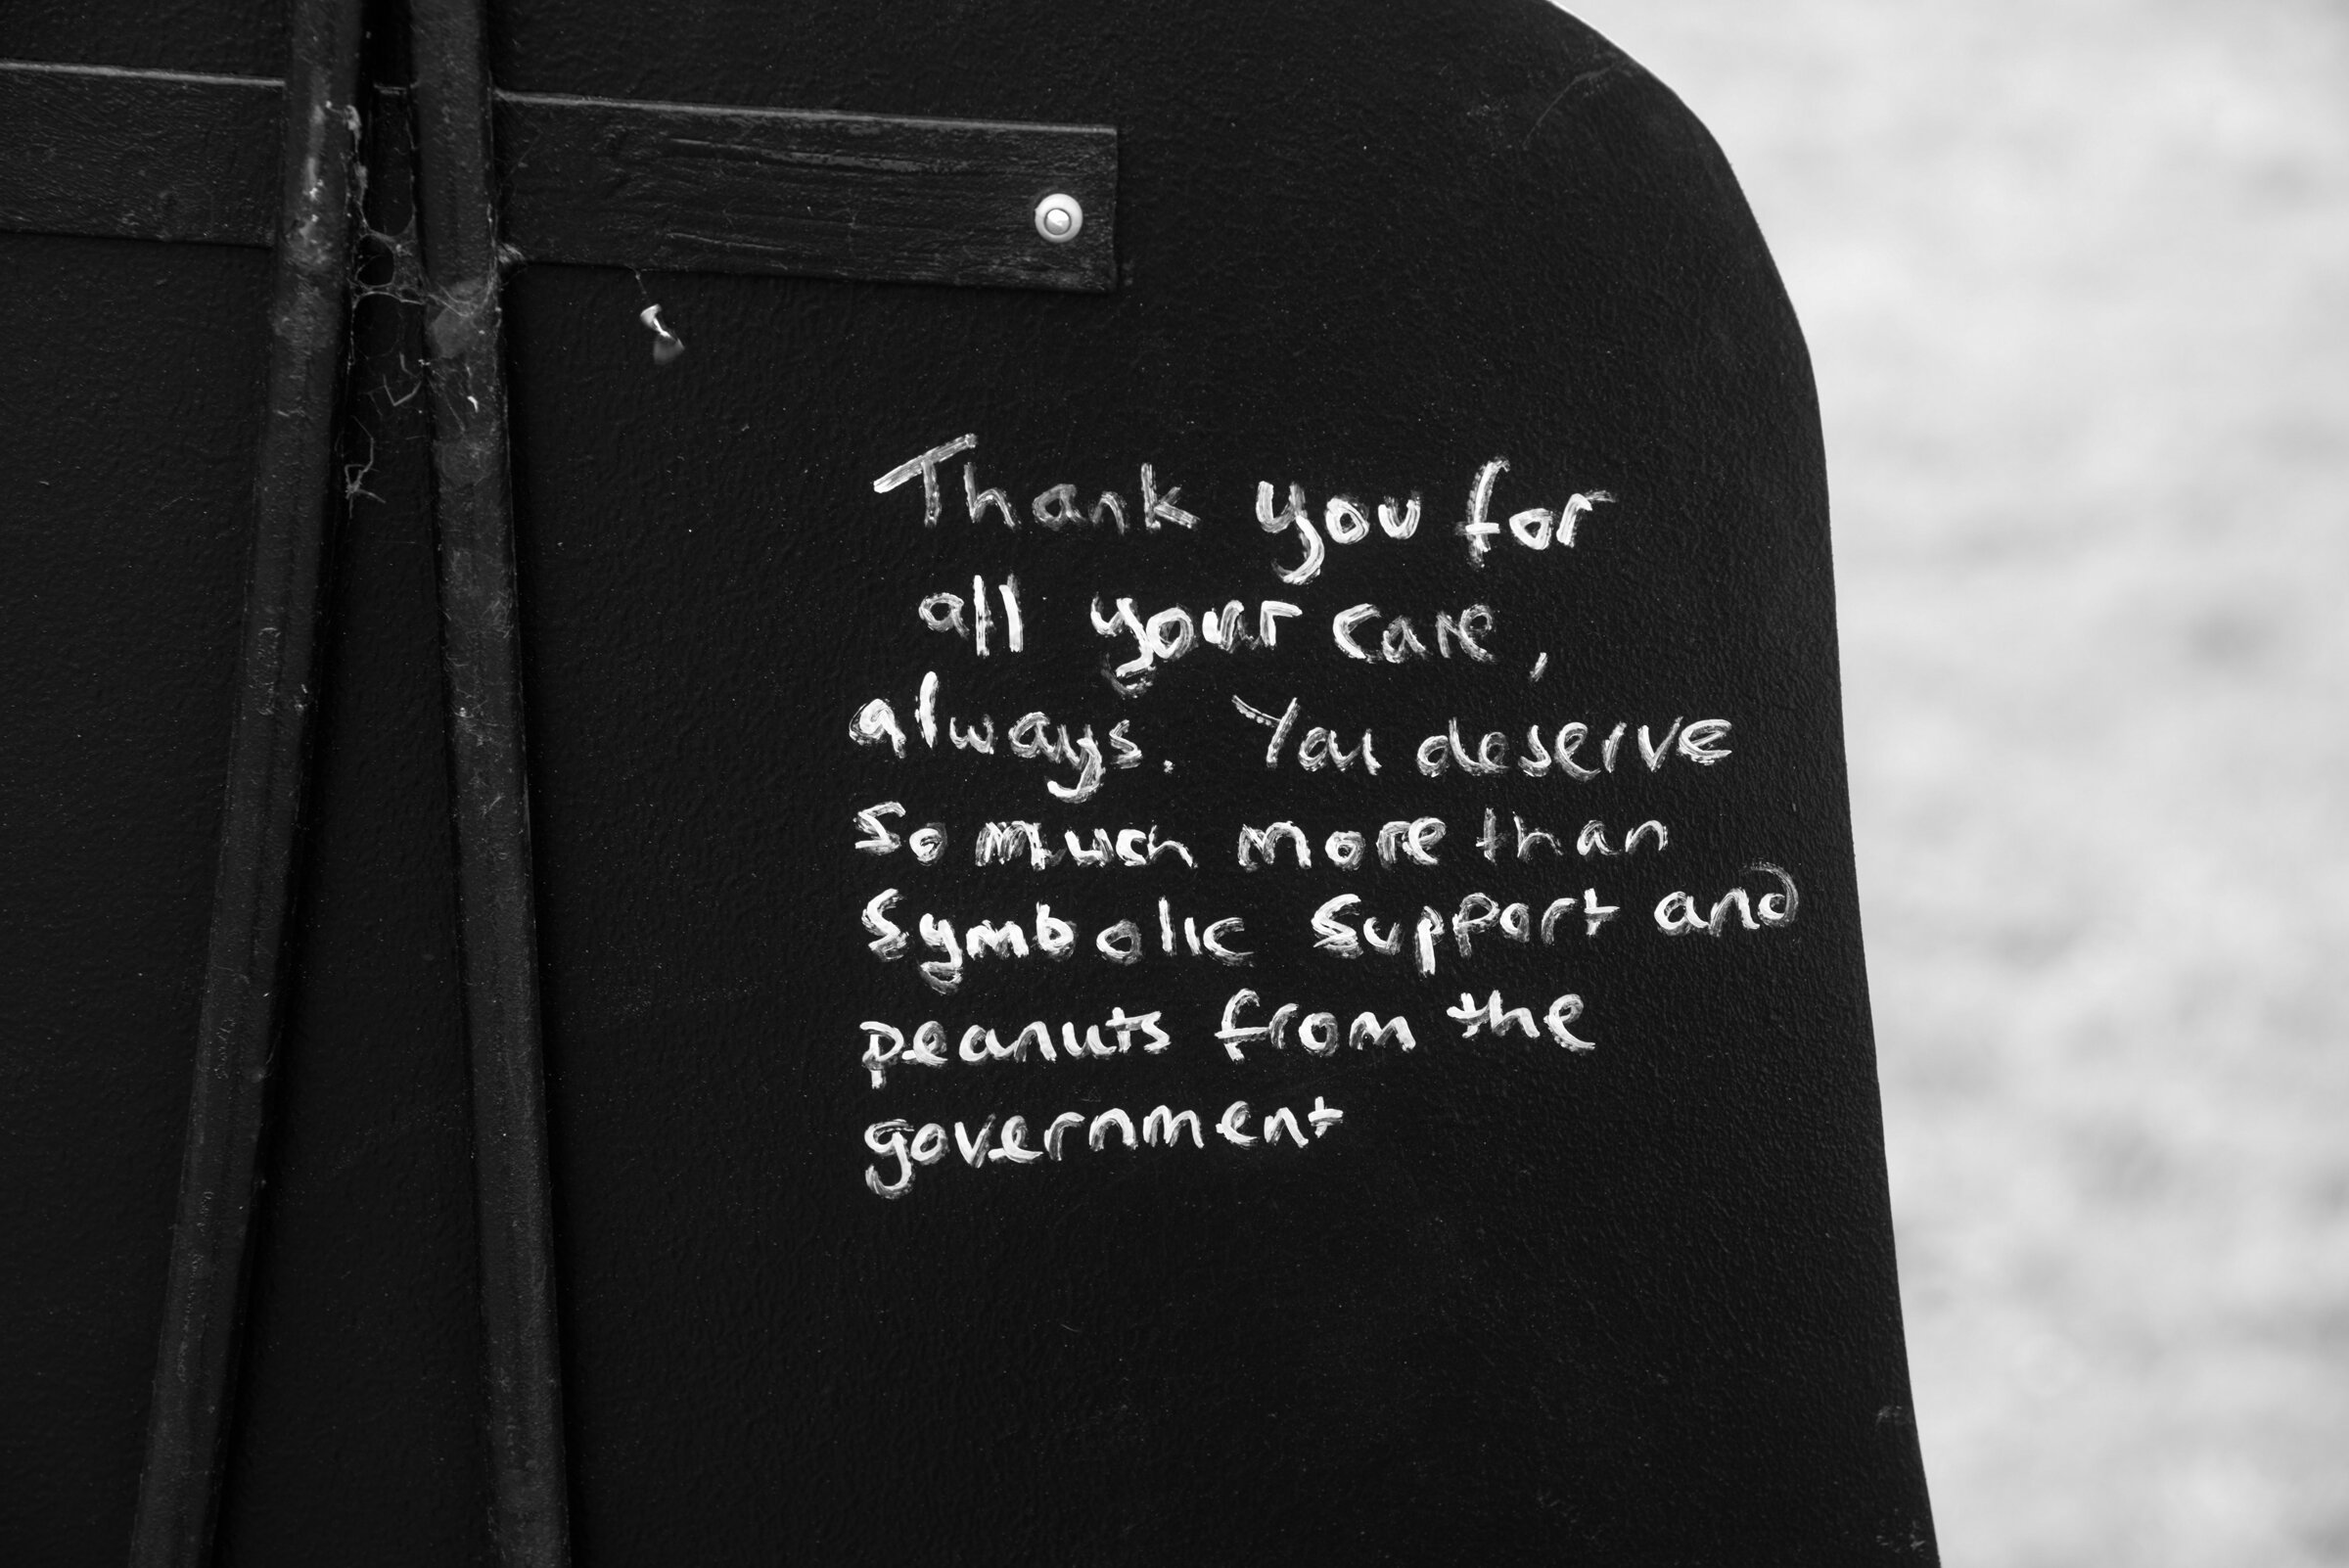 Thank you for
all your care,
always. You deserve
so much more than
Symbolic Support and
peanuts from the
government